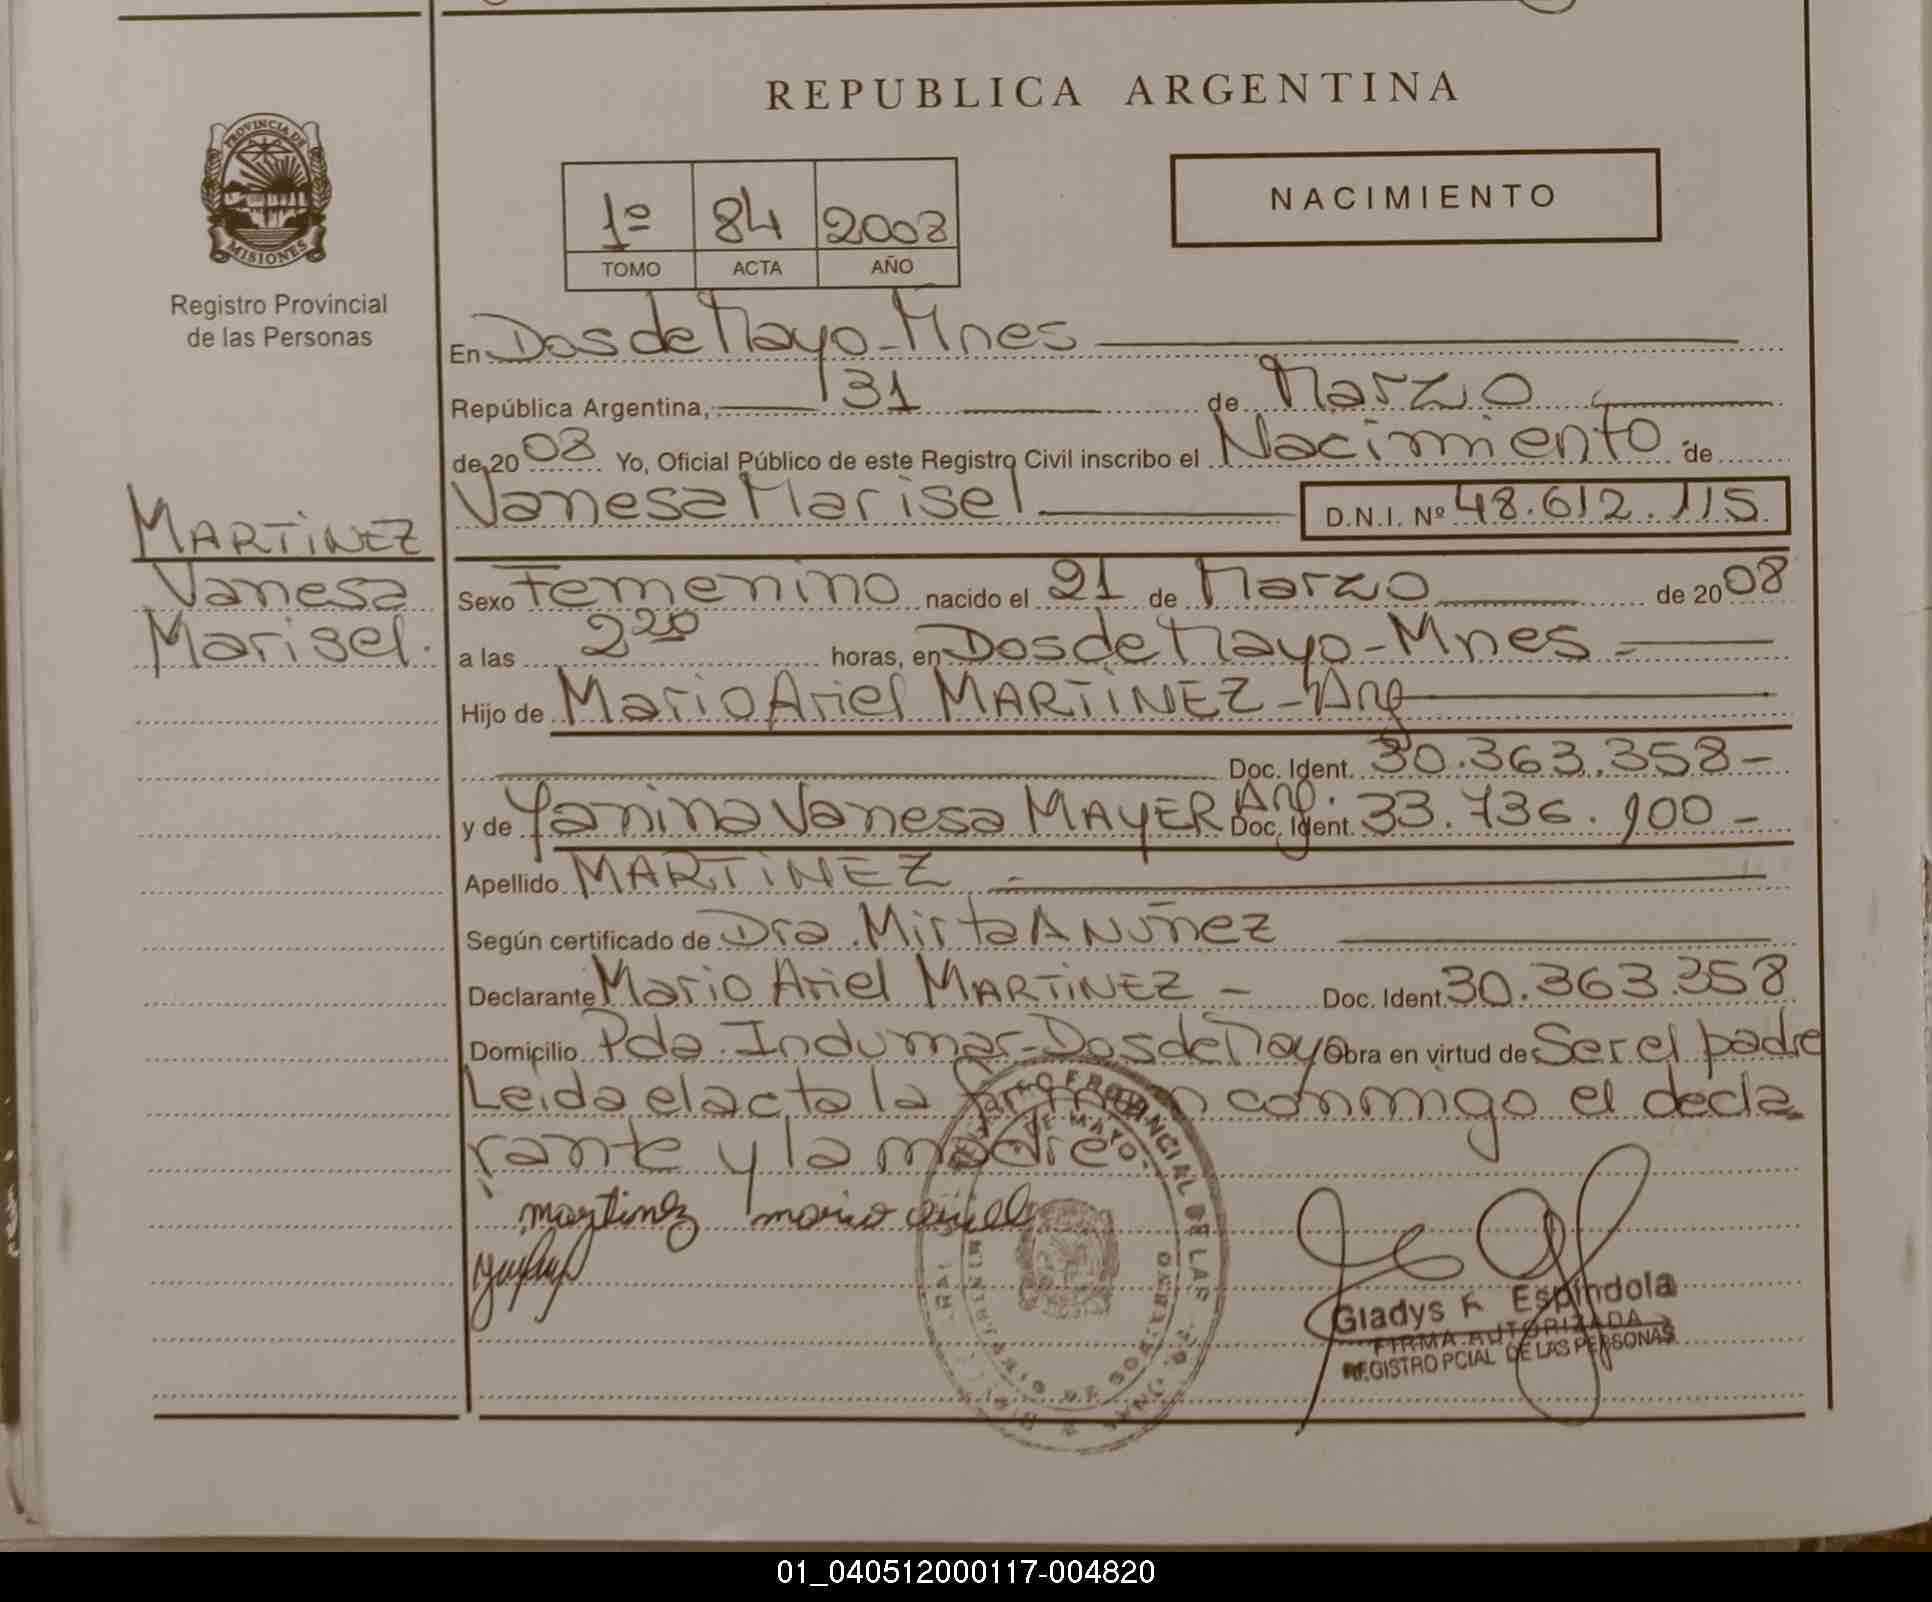 REPUBLICA ARGENTINA
PROVINCIA DE
MISIONES
Registro Provincial
de las Personas
1º 84 2008
TOMO ACTA AÑO
NACIMIENTO
En Dos de Mayo - Mnes
República Argentina, 31 de Marzo
de 2008 Yo, Oficial Público de este Registro Civil inscribo el Nacimiento de
Vanesa Marisel D.N.I. Nº 48.612.115
MARTINEZ
Vanesa
Marisel.
Sexo Femenino nacido el 21 de Marzo de 2008
a las 2 20 horas, en Dos de Mayo - Mnes
Hijo de Mario Ariel MARTINEZ - Arg
Doc. Ident. 30.363.358 -
y de Yanina Vanesa MAYER Arg. Doc. Ident. 33.736.900 -
Apellido MARTINEZ
Según certificado de Dra. Mirta A Nuñez
Declarante Mario Ariel MARTINEZ - Doc. Ident. 30.363.358
Domicilio Pda. Indumar - Dos de Mayo Obra en virtud de Ser el padre
Leida el acta la firman conmigo el decla
rante y la madre
martinez mario ariel
Gladys F. Espindola
FIRMA AUTORIZADA
REGISTRO PCIAL DE LAS PERSONAS
01_040512000117-004820